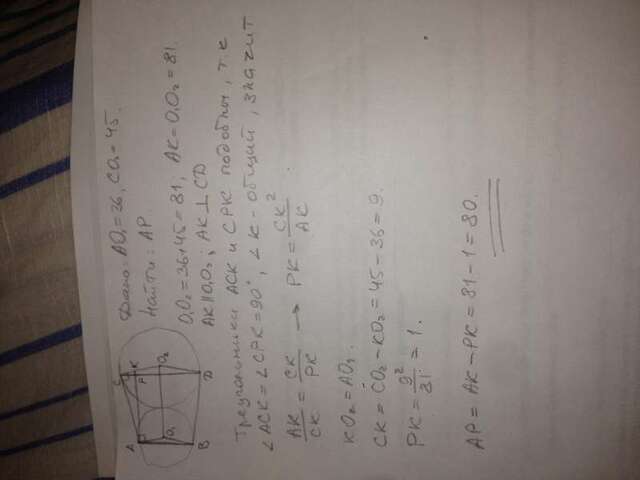 Дано: AO₁=36, CO₂=45.
Найти: AP
O₁O₂=36+45=81; AK=O₁O₂=81.
AK||O₁O₂; AK⊥CD
Треугольники ACK и CPK подобны, т.к
∠ACK=∠CPK=90°, ∠K-общий, значит
AK/CK = CK/PK → PK = CK²/AK.
KO₂=AO₁.
CK=CO₂-KO₂=45-36=9.
PK=9²/81=1.
AP=AK-PK=81-1=80.
A
C
K
P
O₁
O₂
B
D